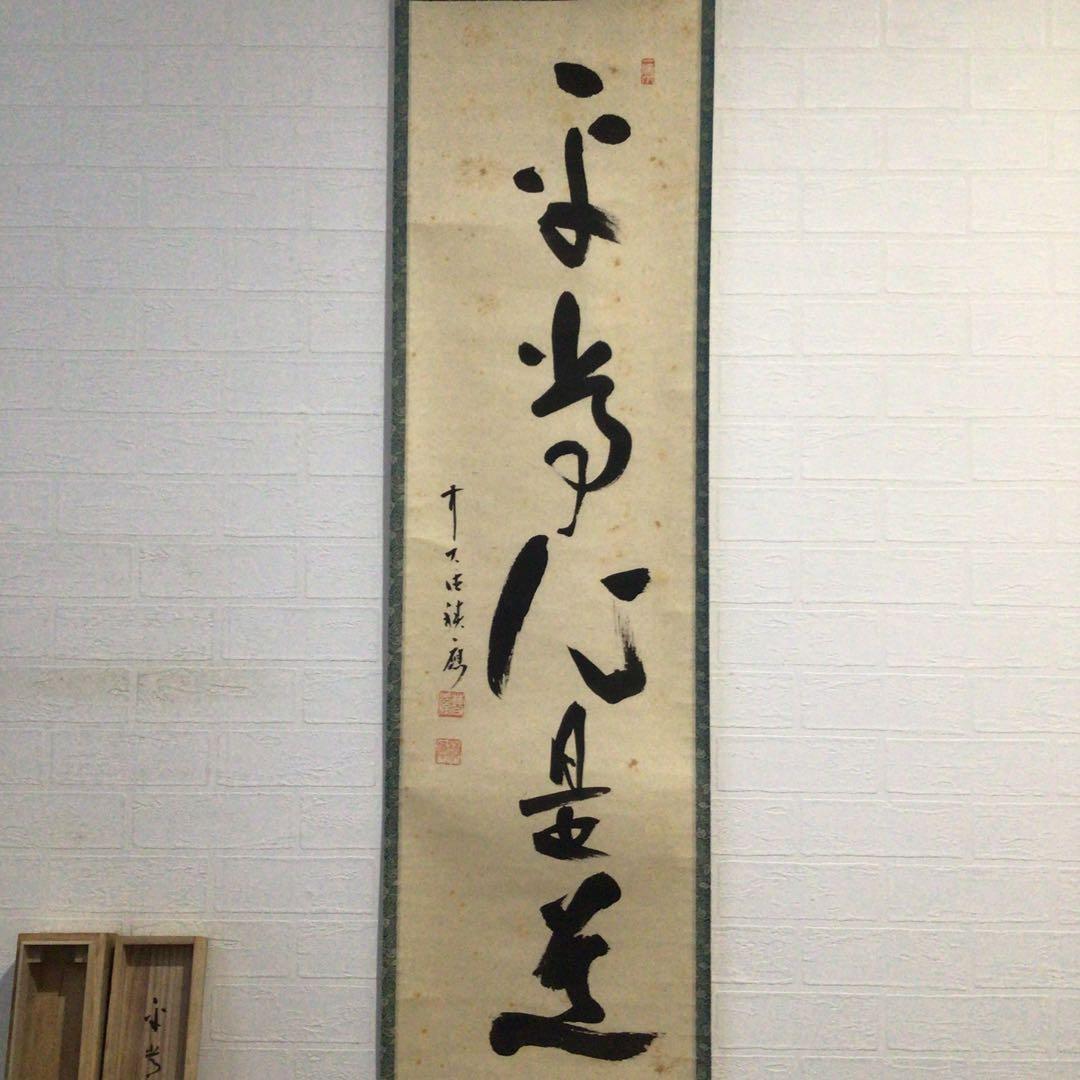 平常心是道
前大徳禅應
平常